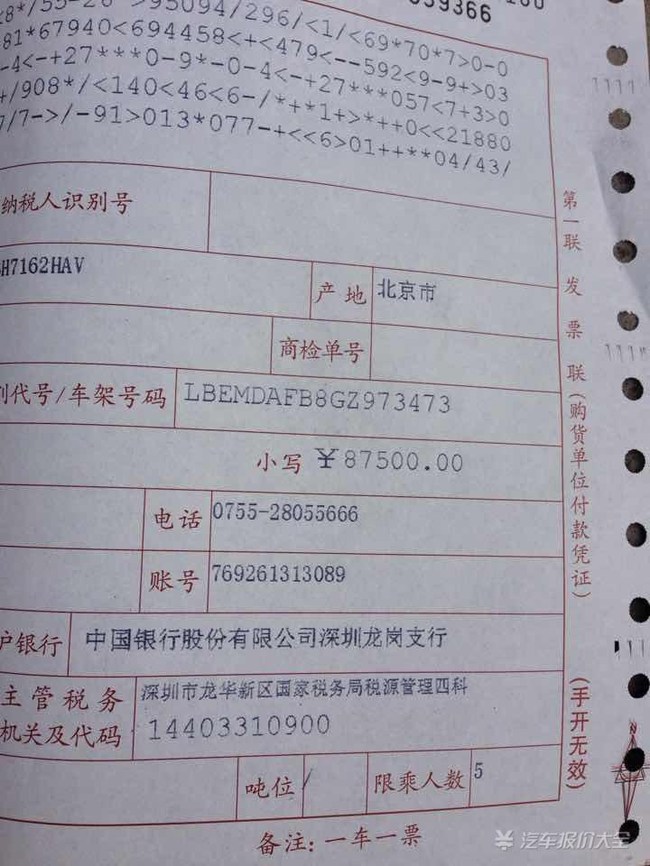 59366
8*/55-26*>95094/296/<1/<69*70*7>0-0
81*67940<694458<+<479<--592<9-9+>03
-4<-+27***0-9*-0-4<-+27***057<7+3>0
+/908*/<140<46<6-/*+*1+>*++0<<21880
7/7->/-91>013*077-+<<6>01++**04/43/
纳税人识别号
H7162HAV 产地 北京市
商检单号
别代号/车架号码 LBEMDAFB8GZ973473
小写 ¥87500.00
电话 0755-28055666
账号 769261313089
户银行 中国银行股份有限公司深圳龙岗支行
主管税务机关及代码 深圳市龙华新区国家税务局税源管理四科
14403310900
吨位 / 限乘人数 5
备注:一车一票
第一联 发票联(购货单位付款凭证)
(手开无效)
汽车报价大全